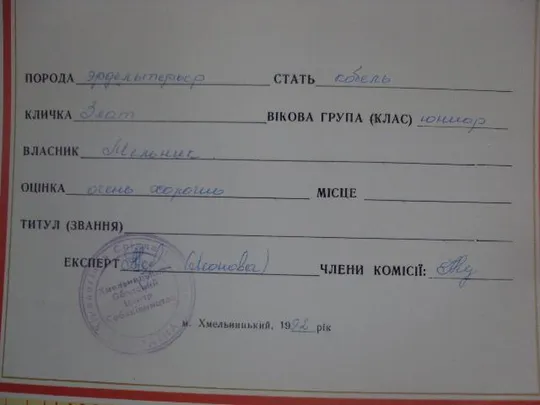 ПОРОДА эрдельтерьер СТАТЬ кобель
КЛИЧКА Злот ВІКОВА ГРУПА (КЛАС) юниор
ВЛАСНИК Мельник
ОЦІНКА очень хорошо МІСЦЕ
ТИТУЛ (ЗВАННЯ)
ЕКСПЕРТ (Леонова) ЧЛЕНИ КОМІСІЇ:
Хмельницький
Обласний
Центр
Собаківництва
м. Хмельницький, 1992 рік